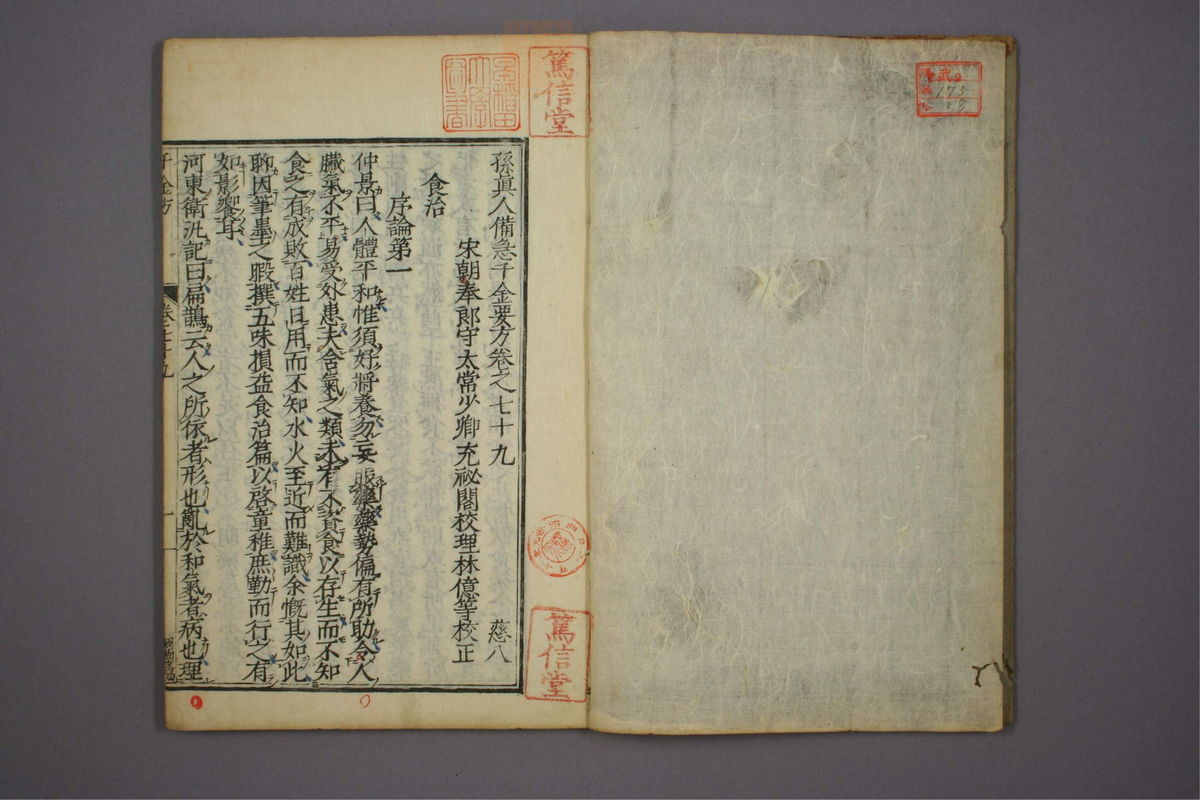 武
175
8
篤信堂
篤信堂
孫真人備急千金要方卷之七十九 慈八
宋朝奉郎守太常少卿充祕閣校理林億等校正
食治
序論第一
仲景曰人體平和惟須好將養勿妄服藥藥勢偏有所助令人
臟氣不平易受外患夫含氣之類未有不資食以存生而不知
食之有成敗百姓日用而不知水火至近而難識余慨其如此
聊因筆墨之暇撰五味損益食治篇以啓童稚庶勤而行之有
如影響耳
河東衛汎記曰扁鵲云人之所依者形也亂於和氣者病也理
千金方
卷七十九
一